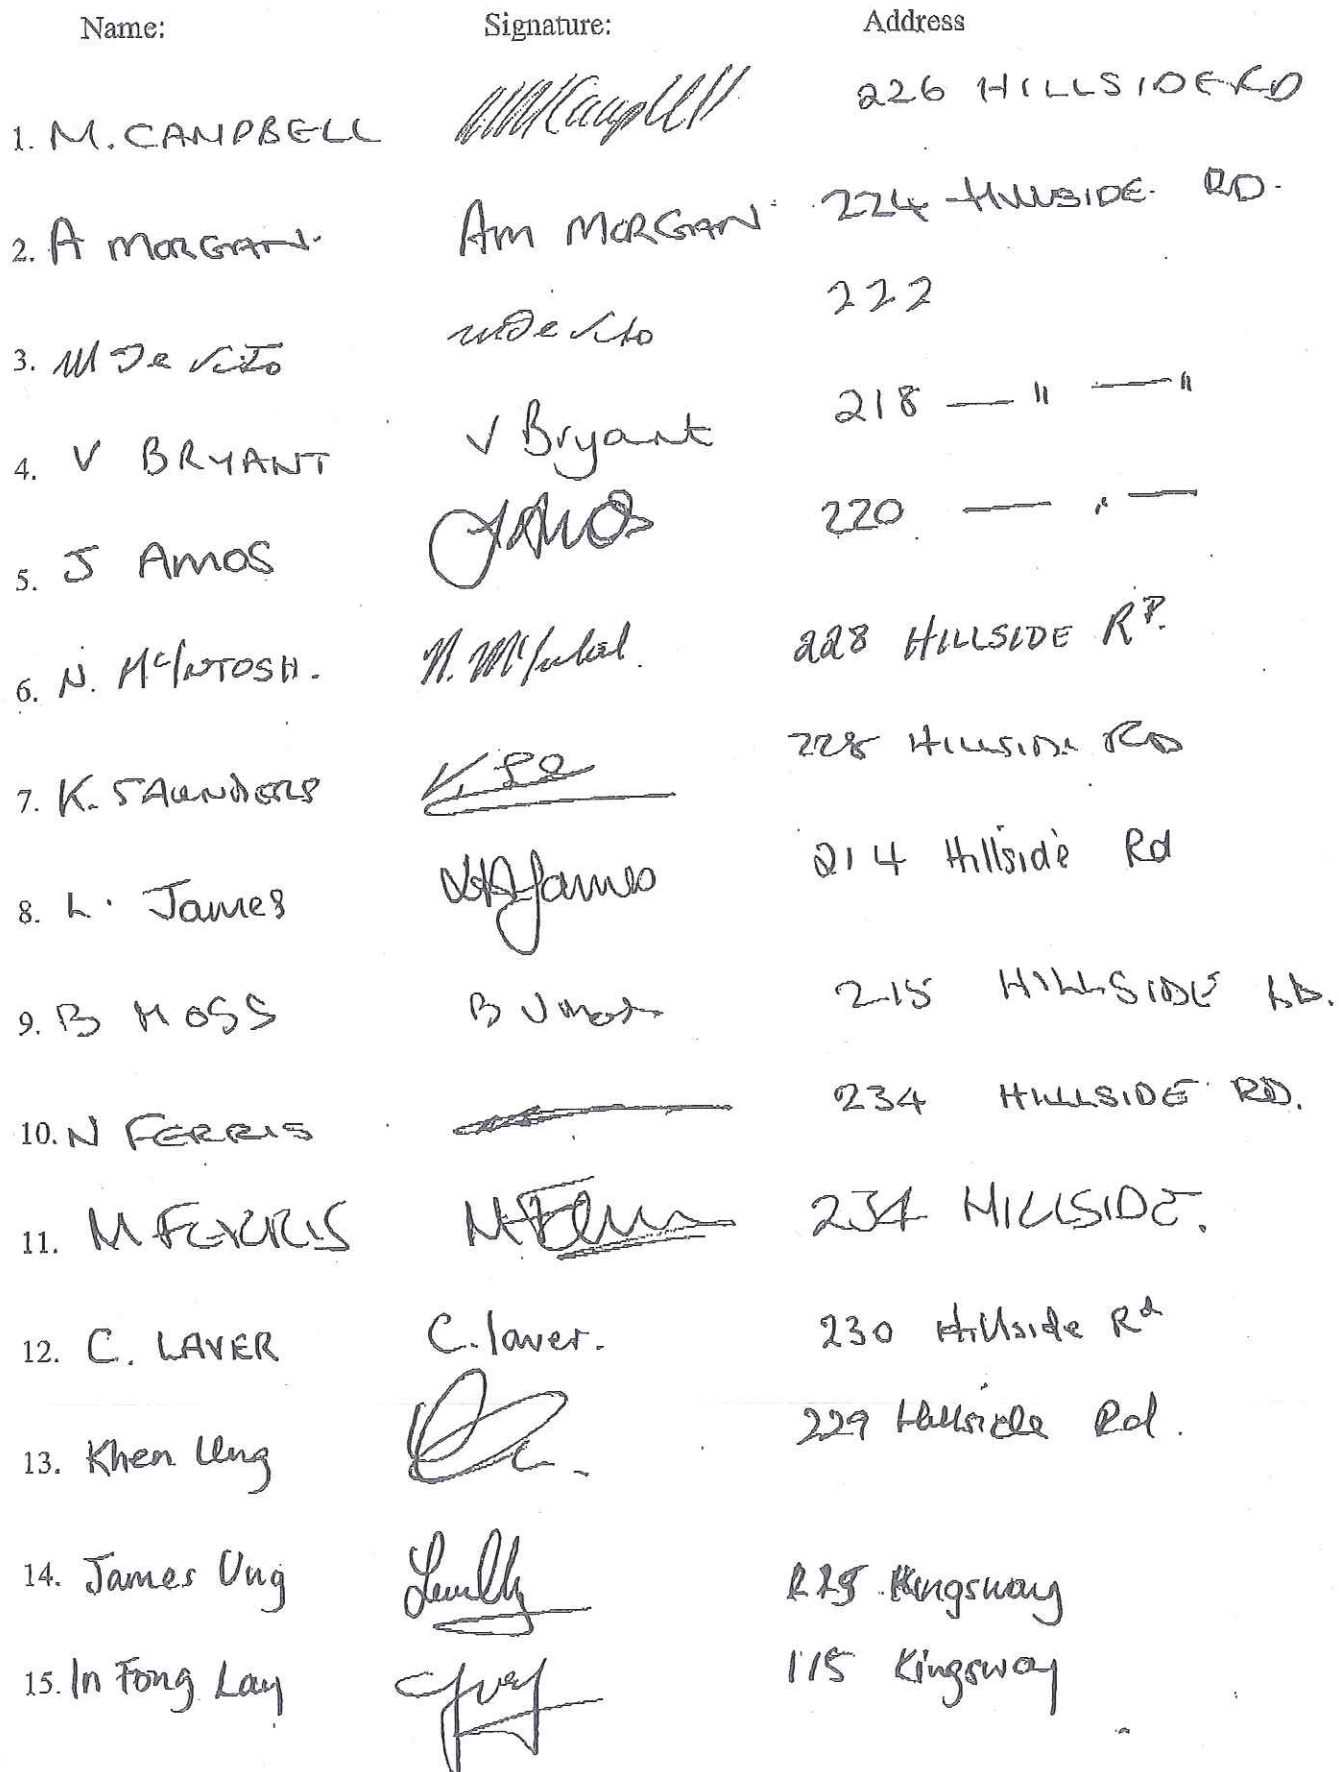 Name: Signature: Address
1. M. CAMPBELL MCampbell 226 HILLSIDE RD
2. A MORGAN. AM MORGAN 224 HILLSIDE. RD.
3. M De Vito M De Vito 222
4. V BRYANT V Bryant 218 — " — "
5. J AMOS J Amos 220 — " —
6. N. McINTOSH. N. McIntosh. 228 HILLSIDE RD.
7. K. SAUNDERS 228 HILLSIDE RD
8. L. James James 214 Hillside Rd
9. B MOSS B J Moss 215 HILLSIDE RD.
10. N FERRIS 234 HILLSIDE RD.
11. M FERRIS M 234 HILLSIDE.
12. C. LAVER C. laver. 230 Hillside Rd
13. Khen Ung 229 Hillside Rd.
14. James Ung Kingsway
15. In Fong Lay 115 Kingsway